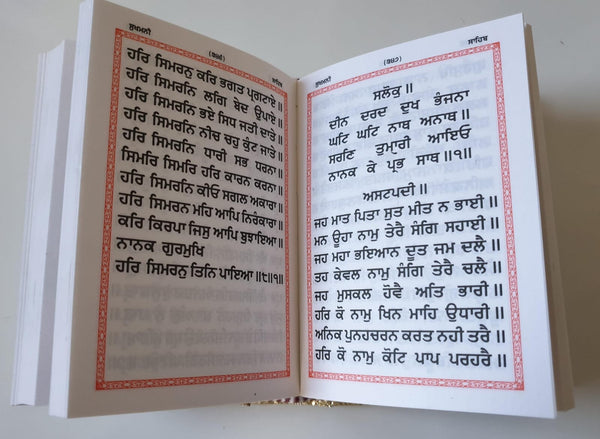 ਸੁਖਮਨੀ
ਸਾਹਿਬ
ਹਰਿ ਸਿਮਰਨੁ ਕਰਿ ਭਗਤ ਪ੍ਰਗਟਾਏ॥
ਹਰਿ ਸਿਮਰਨਿ ਲਗਿ ਬੇਦ ਉਪਾਏ॥
ਹਰਿ ਸਿਮਰਨਿ ਭਏ ਸਿਧ ਜਤੀ ਦਾਤੇ॥
ਹਰਿ ਸਿਮਰਨਿ ਨੀਚ ਚਹੁ ਕੁੰਟ ਜਾਤੇ॥
ਹਰਿ ਸਿਮਰਨਿ ਧਾਰੀ ਸਭ ਧਰਨਾ॥
ਸਿਮਰਿ ਸਿਮਰਿ ਹਰਿ ਕਾਰਨ ਕਰਨਾ॥
ਹਰਿ ਸਿਮਰਨਿ ਕੀਓ ਸਗਲ ਅਕਾਰਾ॥
ਹਰਿ ਸਿਮਰਨ ਮਹਿ ਆਪਿ ਨਿਰੰਕਾਰਾ॥
ਕਰਿ ਕਿਰਪਾ ਜਿਸੁ ਆਪਿ ਬੁਝਾਇਆ॥
ਨਾਨਕ ਗੁਰਮੁਖਿ
ਹਰਿ ਸਿਮਰਨੁ ਤਿਨਿ ਪਾਇਆ॥੮॥੧॥
ਸੁਖਮਨੀ
ਸਾਹਿਬ
ਸਲੋਕੁ॥
ਦੀਨ ਦਰਦ ਦੁਖ ਭੰਜਨਾ
ਘਟਿ ਘਟਿ ਨਾਥ ਅਨਾਥ॥
ਸਰਣਿ ਤੁਮ੍ਹਾਰੀ ਆਇਓ
ਨਾਨਕ ਕੇ ਪ੍ਰਭ ਸਾਥ॥੧॥
ਅਸਟਪਦੀ॥
ਜਹ ਮਾਤ ਪਿਤਾ ਸੁਤ ਮੀਤ ਨ ਭਾਈ॥
ਮਨ ਊਹਾ ਨਾਮੁ ਤੇਰੈ ਸੰਗਿ ਸਹਾਈ॥
ਜਹ ਮਹਾ ਭਇਆਨ ਦੂਤ ਜਮ ਦਲੈ॥
ਤਹ ਕੇਵਲ ਨਾਮੁ ਸੰਗਿ ਤੇਰੈ ਚਲੈ॥
ਜਹ ਮੁਸਕਲ ਹੋਵੈ ਅਤਿ ਭਾਰੀ॥
ਹਰਿ ਕੋ ਨਾਮੁ ਖਿਨ ਮਾਹਿ ਉਧਾਰੀ॥
ਅਨਿਕ ਪੁਨਹਚਰਨ ਕਰਤ ਨਹੀ ਤਰੈ॥
ਹਰਿ ਕੋ ਨਾਮੁ ਕੋਟਿ ਪਾਪ ਪਰਹਰੈ॥